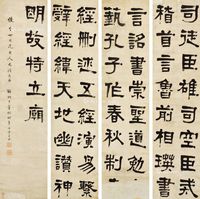 司徒臣雄司空臣戒
稽首言魯前相瑛書
言詔書崇聖道勉
藝孔子作春秋制
經刪述五經演易繫
辭經緯天地幽讚神
明故特立廟